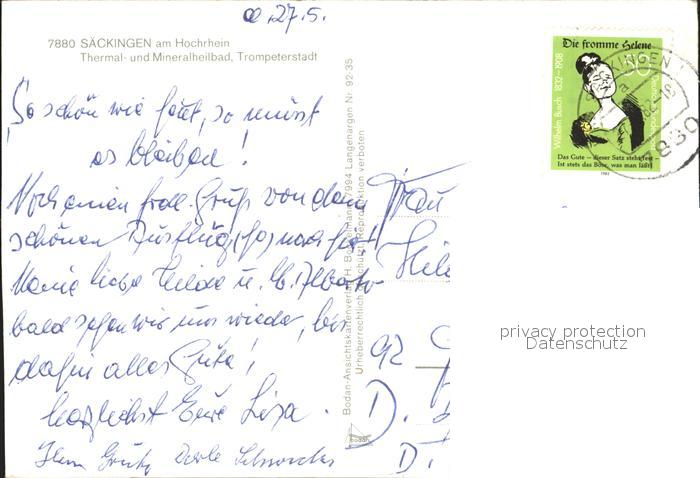 27.5.
7880 SÄCKINGEN am Hochrhein
Thermal- und Mineralheilbad, Trompeterstadt
So schön wie jetzt, so müsst
es bleiben!
Noch einen Gruß von dem
schönen Ausflug
Meine liebe Hilde u. lb. Albert
bald sehen wir uns wieder, bis
dahin alles Gute!
herzlichst Eure Lisa.
Bodan-Ansichtskartenverlag H. 7994 Langenargen Nr. 92-35
Urheberrechtlich geschützt Reproduktion verboten
bodan
Die fromme Helene
Wilhelm Busch 1832-1908
Deutsche Bundespost
50
Das Gute – dieser Satz steht fest –
Ist stets das Böse, was man läßt!
1982
7880
Frau
Hil
D.
D.
privacy protection
Datenschutz